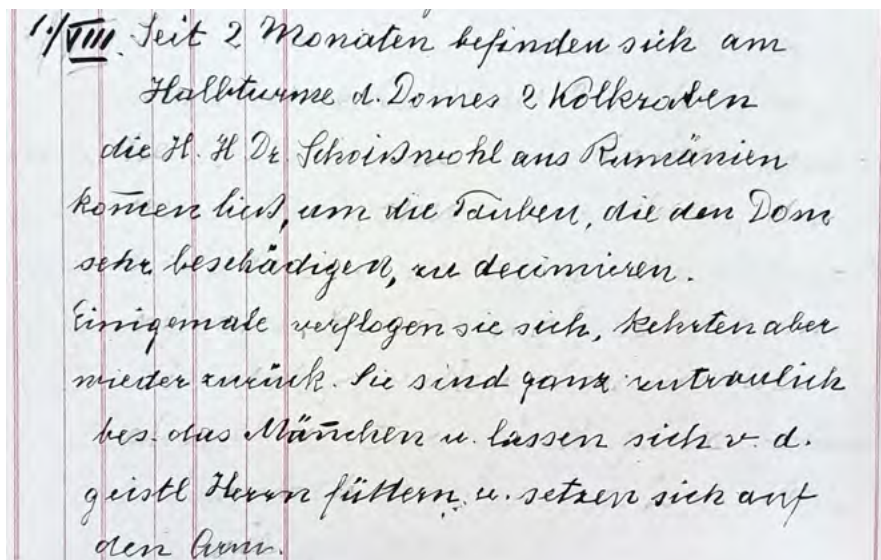 1./VIII. Seit 2 Monaten befinden sich am
Halbturme d. Domes 2 Kolkraben
die H. H Dr. Schoißwohl aus Rumänien
kom̄en ließ, um die Tauben, die den Dom
sehr beschädigen, zu decimieren.
Einigemale verflogen sie sich, kehrten aber
wieder zurück. Sie sind ganz zutraulich
bes. das Män̄chen u. lassen sich v. d.
geistl Herrn füttern u. setzen sich auf
den Arm.